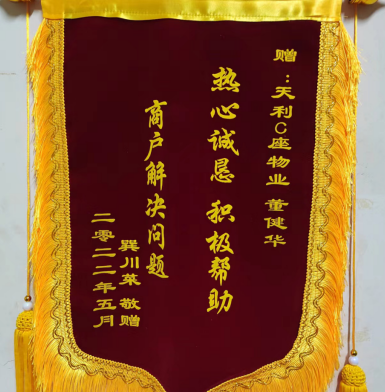 赠：天利C座物业 董健华
热心诚恳 积极帮助
商户解决问题
巽川菜 敬赠
二零二二年五月